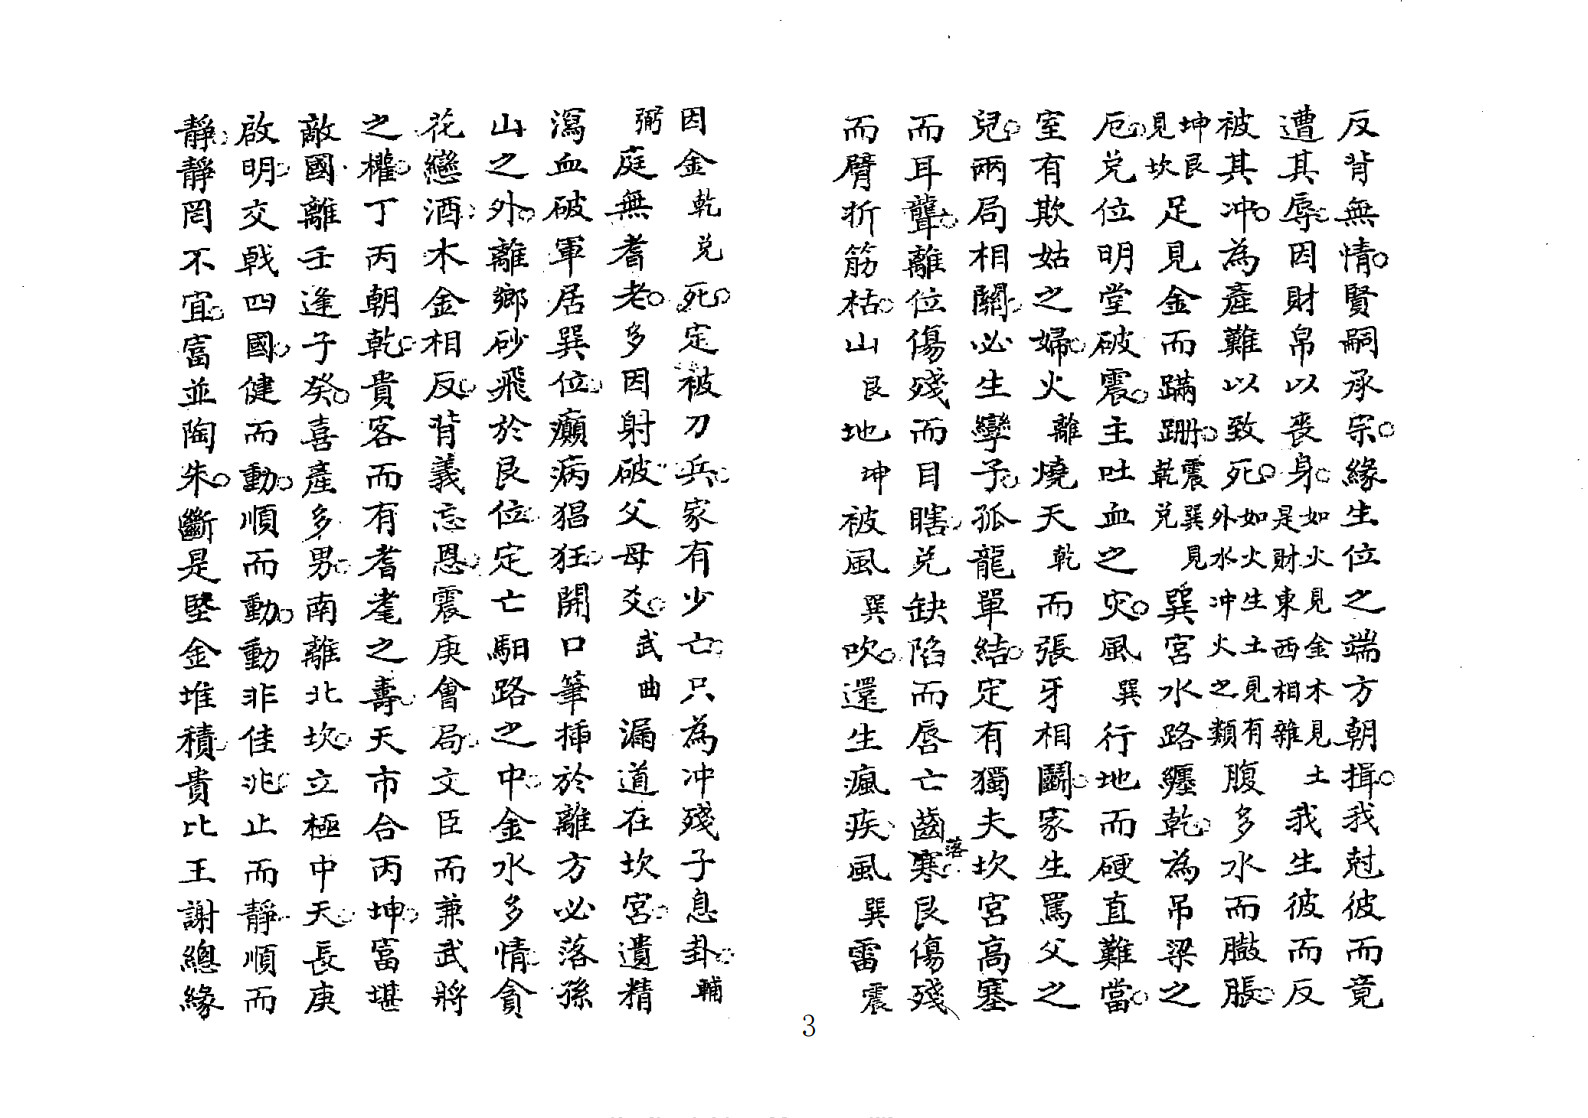 反背無情。賢嗣承宗。緣生位之端方朝揖。我尅彼而竟
遭其辱。因財帛以喪身。如火見金木見土是財東西相雜我生彼而反
被其冲。為產難以致死。如火生土見有外水冲火之類腹多水而臌脹。
坤艮見坎足見金而蹣跚。震巽見乾兌巽宮水路纏乾。為吊梁之
厄。兌位明堂破震。主吐血之灾。風巽行地而硬直難當。
室有欺姑之婦。火離燒天乾而張牙相鬪。家生罵父之
兒。兩局相關。必生孿子。孤龍單結。定有獨夫坎宮高塞
而耳聾。離位傷殘而目瞎。兌缺陷而唇亡齒落寒。艮傷殘
而臂折筋枯。山艮地坤被風巽吹。還生瘋疾。風巽雷震
因金乾兌死。定被刀兵。家有少亡。只為冲殘子息卦。輔
弼庭無耆老。多因射破父母爻。武曲漏道在坎宮。遺精
瀉血破軍居巽位。癲病猖狂。開口筆插於離方必落孫
山之外。離鄉砂飛於艮位。定亡馹路之中。金水多情。貪
花戀酒。木金相反。背義忘恩。震庚會局。文臣而兼武將
之權。丁丙朝乾。貴客而有耆耄之壽。天市合丙坤。富堪
敵國。離壬逢子癸。喜產多男。南離北坎。立極中天。長庚
啟明。交戰四國。健而動。順而動。動非佳兆。止而靜。順而
靜。靜罔不宜。富並陶朱。斷是堅金堆積。貴比王謝總緣
3